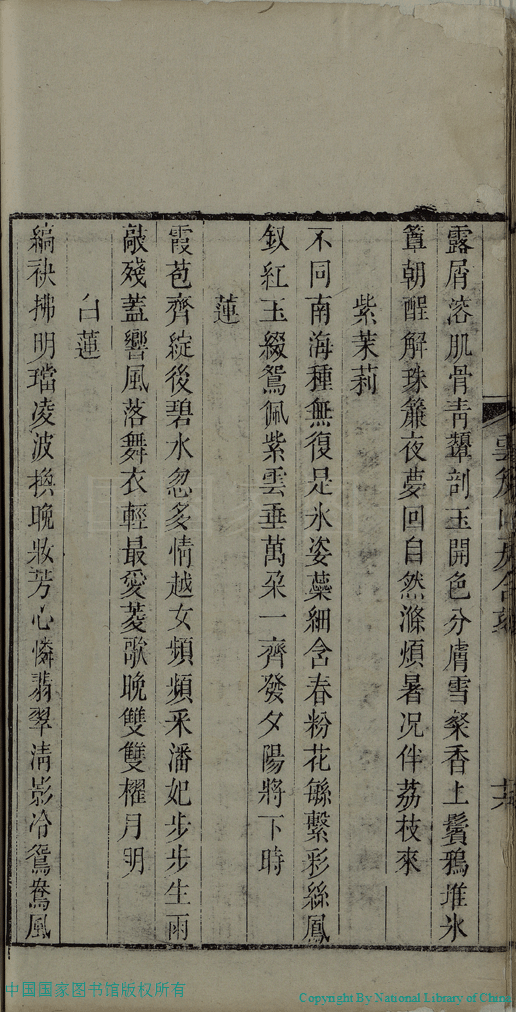 露屑溶肌骨靑顰剖玉開色分膚雪粲香上鬢鴉堆氷
簟朝酲解珠簾夜夢回自然滌煩暑况伴荔枝來
紫茉莉
不同南海種無復是氷姿蘂細含春粉花緐繫彩絲鳳
釵紅玉綴鴛佩紫雲垂萬朶一齊發夕陽將下時
蓮
霞苞齊綻後碧水忽多情越女頻頻采潘妃步步生雨
敲殘蓋響風落舞衣輕最愛菱歌晚雙雙櫂月明
白蓮
縞袂拂明璫凌波換晚妝芳心憐翡翠淸影冷鴛鴦風
中国国家图书馆版权所有
Copyright By National Library of China